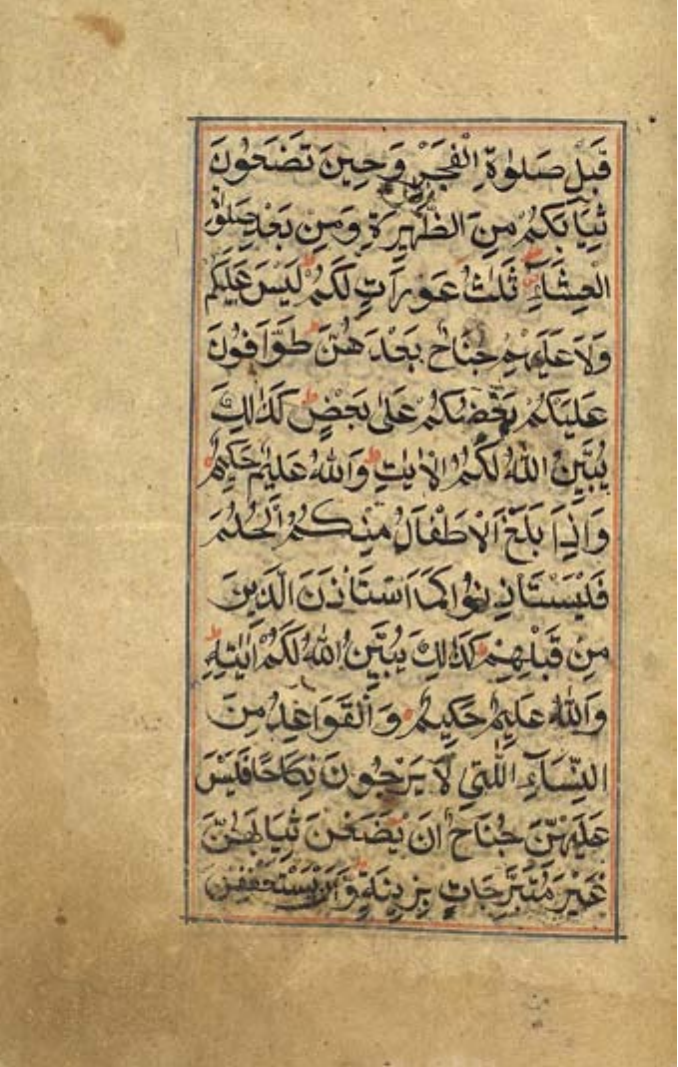 قَبْلِ صَلٰوةِ الْفَجْرِ وَحِينَ تَضَعُونَ
ثِيَابَكُمْ مِنَ الظَّهِيرَةِ وَمِنْ بَعْدِ صَلٰوةِ
الْعِشَآءِ ثَلٰثُ عَوْرَاتٍ لَكُمْ لَيْسَ عَلَيْكُمْ
وَلَا عَلَيْهِمْ جُنَاحٌ بَعْدَهُنَّ طَوَّافُونَ
عَلَيْكُمْ بَعْضُكُمْ عَلٰى بَعْضٍ كَذٰلِكَ
يُبَيِّنُ اللّٰهُ لَكُمُ الْاٰيٰتِ وَاللّٰهُ عَلِيمٌ حَكِيمٌ
وَاِذَا بَلَغَ الْاَطْفَالُ مِنْكُمُ الْحُلُمَ
فَلْيَسْتَاْذِنُوا كَمَا اسْتَاْذَنَ الَّذِينَ
مِنْ قَبْلِهِمْ كَذٰلِكَ يُبَيِّنُ اللّٰهُ لَكُمْ اٰيٰتِهِ
وَاللّٰهُ عَلِيمٌ حَكِيمٌ وَالْقَوَاعِدُ مِنَ
النِّسَآءِ اللّٰتِي لَا يَرْجُونَ نِكَاحًا فَلَيْسَ
عَلَيْهِنَّ جُنَاحٌ اَنْ يَضَعْنَ ثِيَابَهُنَّ
غَيْرَ مُتَبَرِّجَاتٍ بِزِينَةٍ وَاَنْ يَسْتَعْفِفْنَ